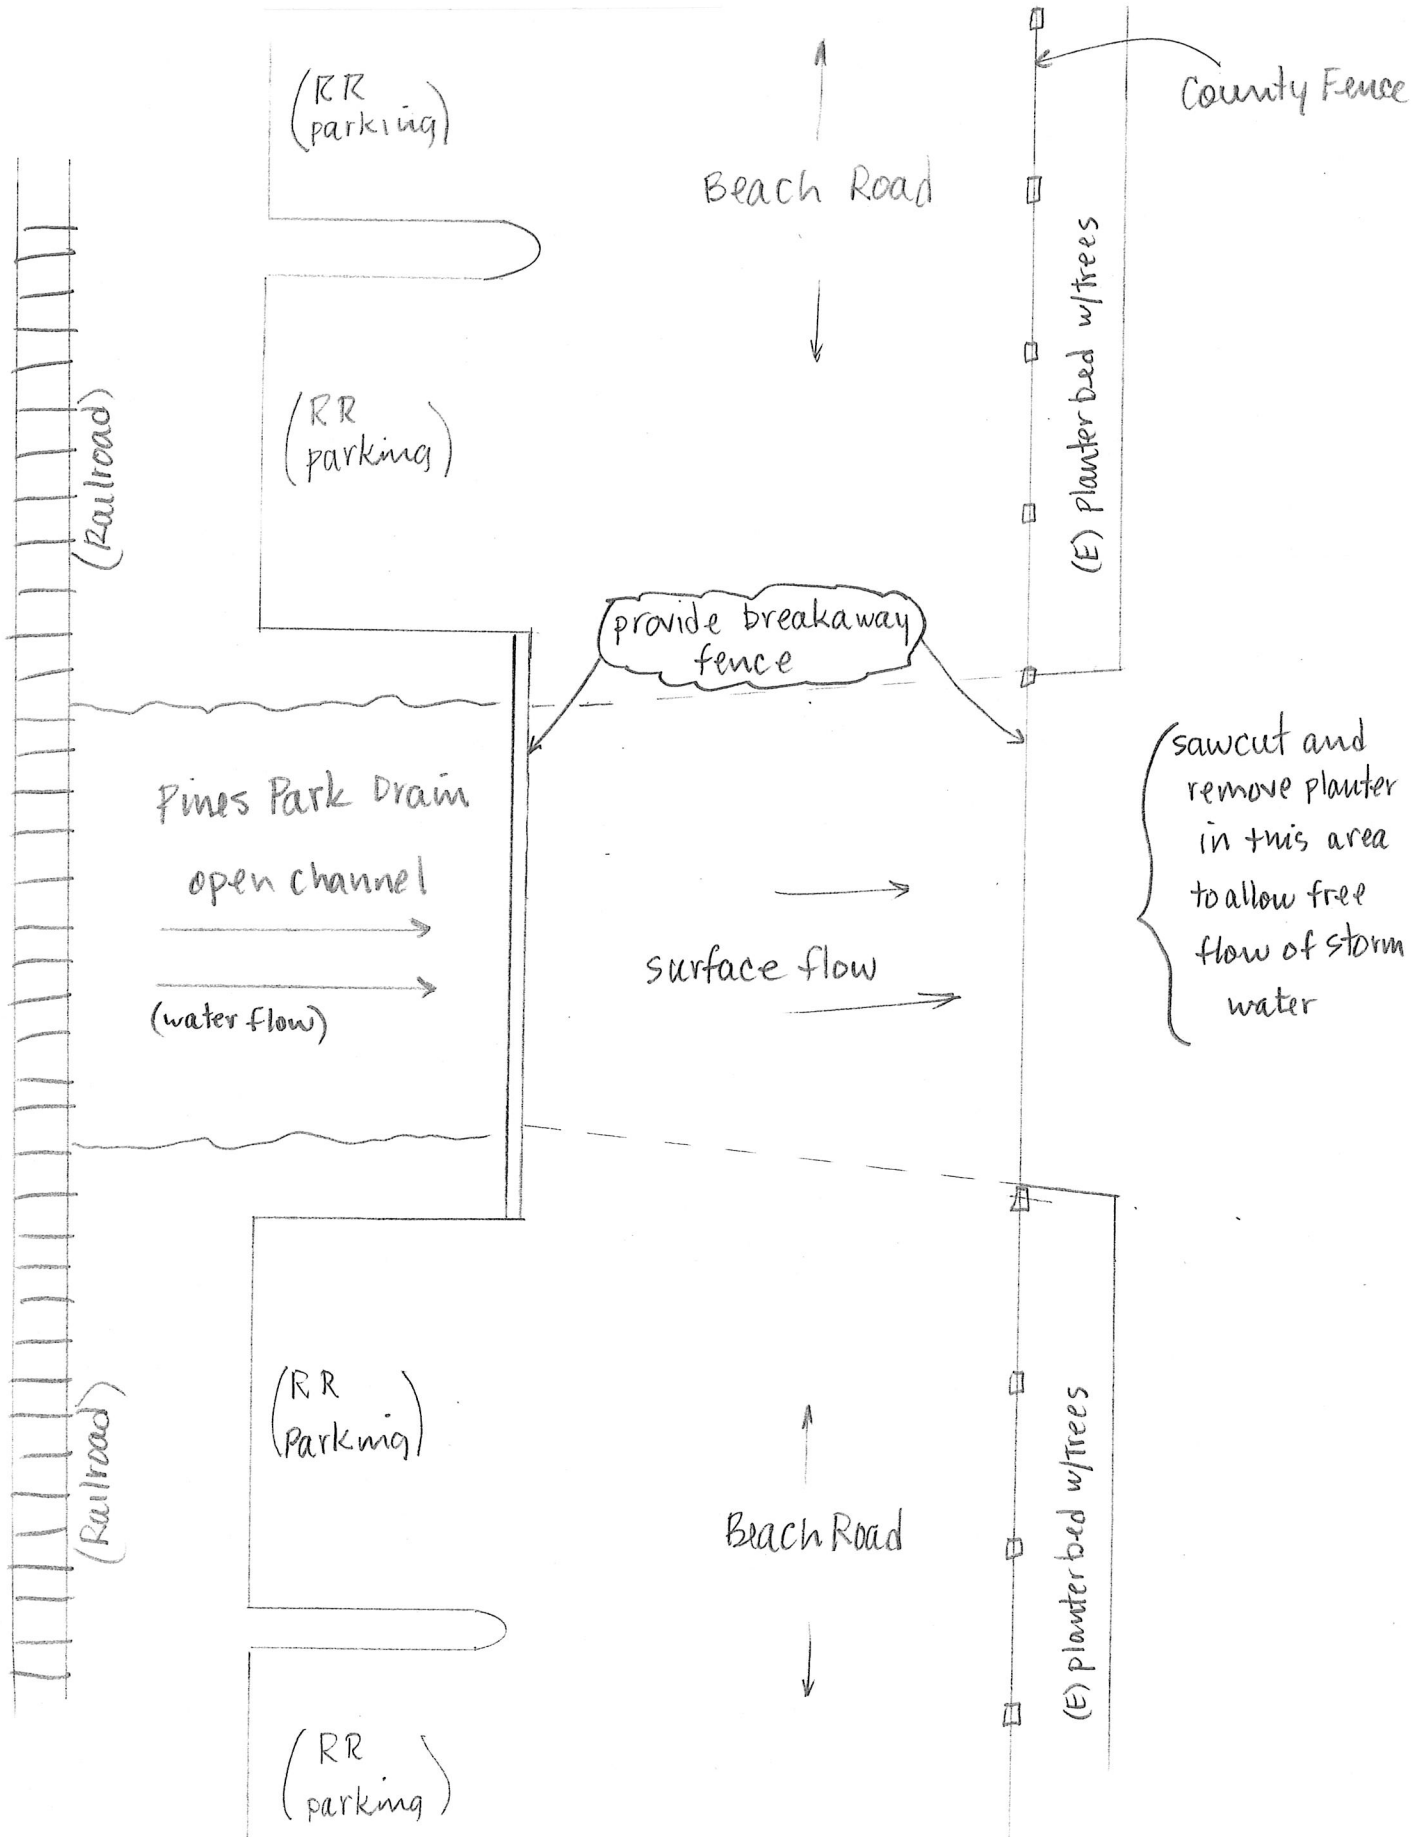 (RR
parking)
County Fence
Beach Road
(E) planter bed w/trees
(Railroad)
(RR
parking)
provide breakaway
fence
sawcut and
remove planter
in this area
to allow free
flow of storm
water
Pines Park Drain
open channel
(water flow)
surface flow
(RR
Parking)
(Railroad)
Beach Road
(E) planter bed w/Trees
(RR
parking)